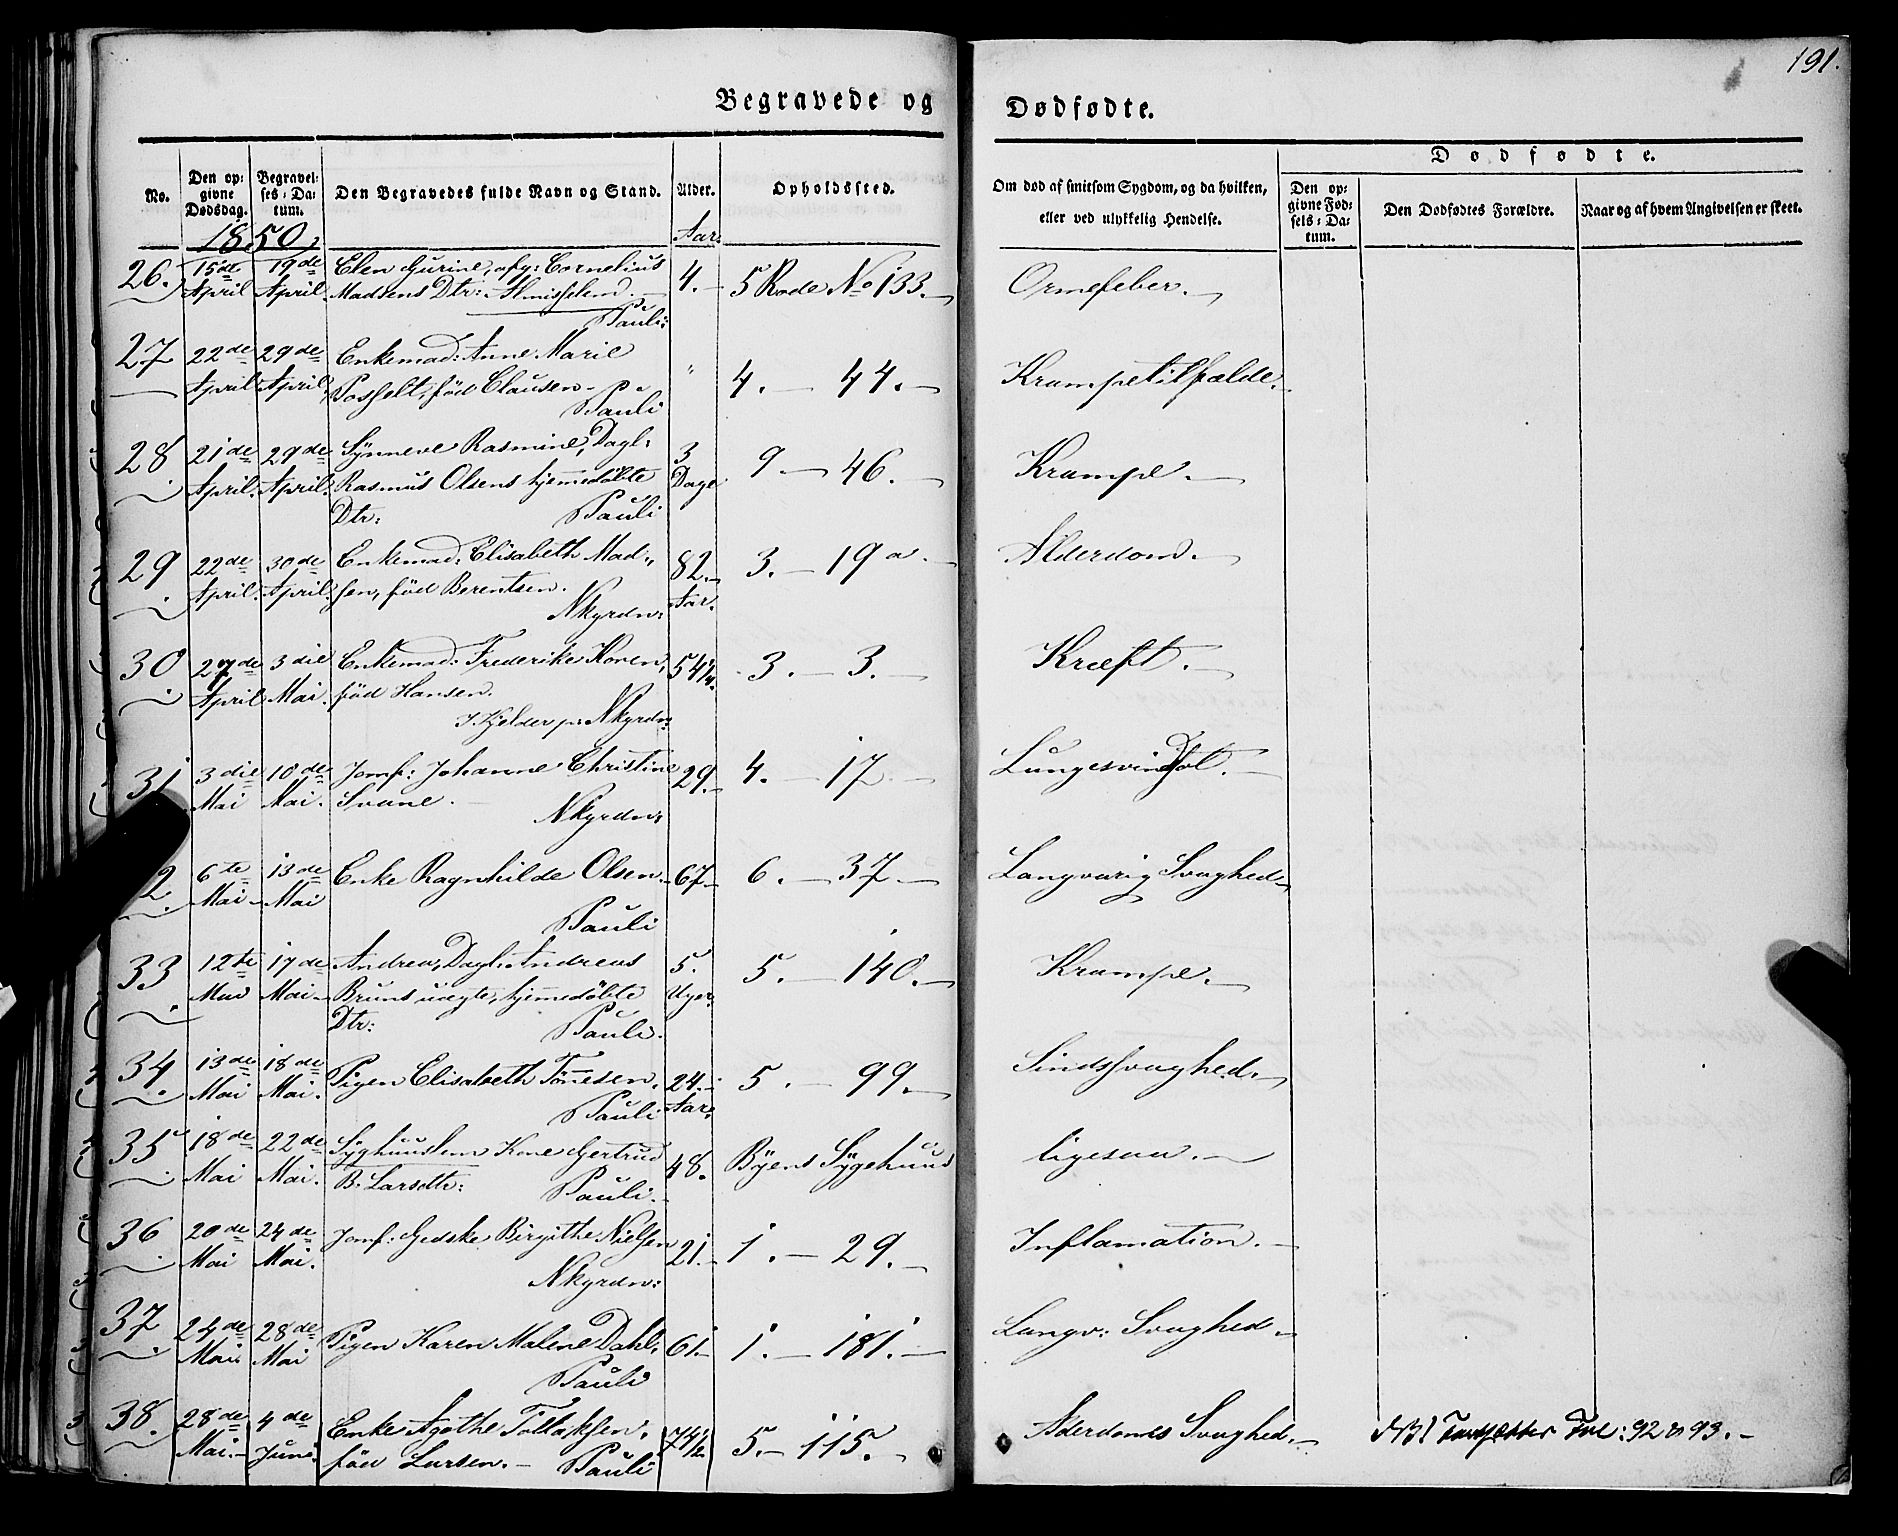 191.
Begravede og Dødfødte.
No.
Den opgivne Dødsdag.
Begravelses-Datum.
Den Begravedes fulde Navn og Stand.
Alder.
Opholdssted.
Om død af smitsom Sygdom, og da hvilken,
eller ved ulykkelig Hendelse.
Dødfødte.
Den opgivne Fødsels-Datum.
Den Dødfødtes Forældre.
Naar og af hvem Angivelsen er skeet.
1850,
Aar.
26. 15de April 19de April Elen Gurine, afg: Cornelius 4. 5 Rode No 133. Ormefeber.
Madsens Dtr:
Pauli:
27 22de April 29de April Enkemad: Anne Marie " 4. 44. Krampetilfælde.
Posselt, fød Clausen
Pauli
28 21de April. 29de April. Synneve Rasmine, Dagl: 3 Dage 9 46. Krampe.
Rasmus Olsens hjemmedøbte
Dtr: Pauli
29. 22de April. 30de April. Enkemad: Elisabeth Mad- 82. Aar. 3. 19a. Alderdom.
sen, fød Berentsen.
Nkyrdn:
30. 27de April 3die Mai Enkemad: Frederike Koren, 54¼. 3. 3. Kræft.
fød Hansen.
Kjelder p: Nkyrdn:
31 3die Mai 10de Mai. Jomf: Johanne Christine 29. 4. 17. Lungesvindsot.
Svane.
Nkyrdn:
2. 6te Mai 13de Mai Enke Ragnhilde Olsen. 67 6. 37. Langvarig Svaghed
Pauli
33. 12te Mai 17de Mai Andrea, Dagl: Andreas 5. Uger. 5. 140. Krampe.
Bruns uægte, hjemmedøbte
Dtr: Pauli.
34. 13de Mai 18de Mai. Pigen Elisabeth Tönesen. 24. Aar. 5. 99. Sindssvaghed.
Pauli
35. 18de Mai 22de Mai. Syghuuslem Kone Gertrud 48. Byens Sygehuus ligesaa.
B. Larsdtr: Pauli.
36. 20de Mai 24de Mai. Jomf. Gedske Birgithe Nielsen 21. 1. 29. Inflamation.
Nkyrdn:
37. 24de Mai 28de Mai Pigen Karen Malene Dahl. 61 1. 181. Langv: Svaghed
Pauli
38. 28de Mai. 4de Juni. Enke Agathe Tollaksen, 74½. 5. 115. Alderdoms Svaghed.
fød Larsen. Pauli
NB! Fortsættes Fol: 92 & 93.